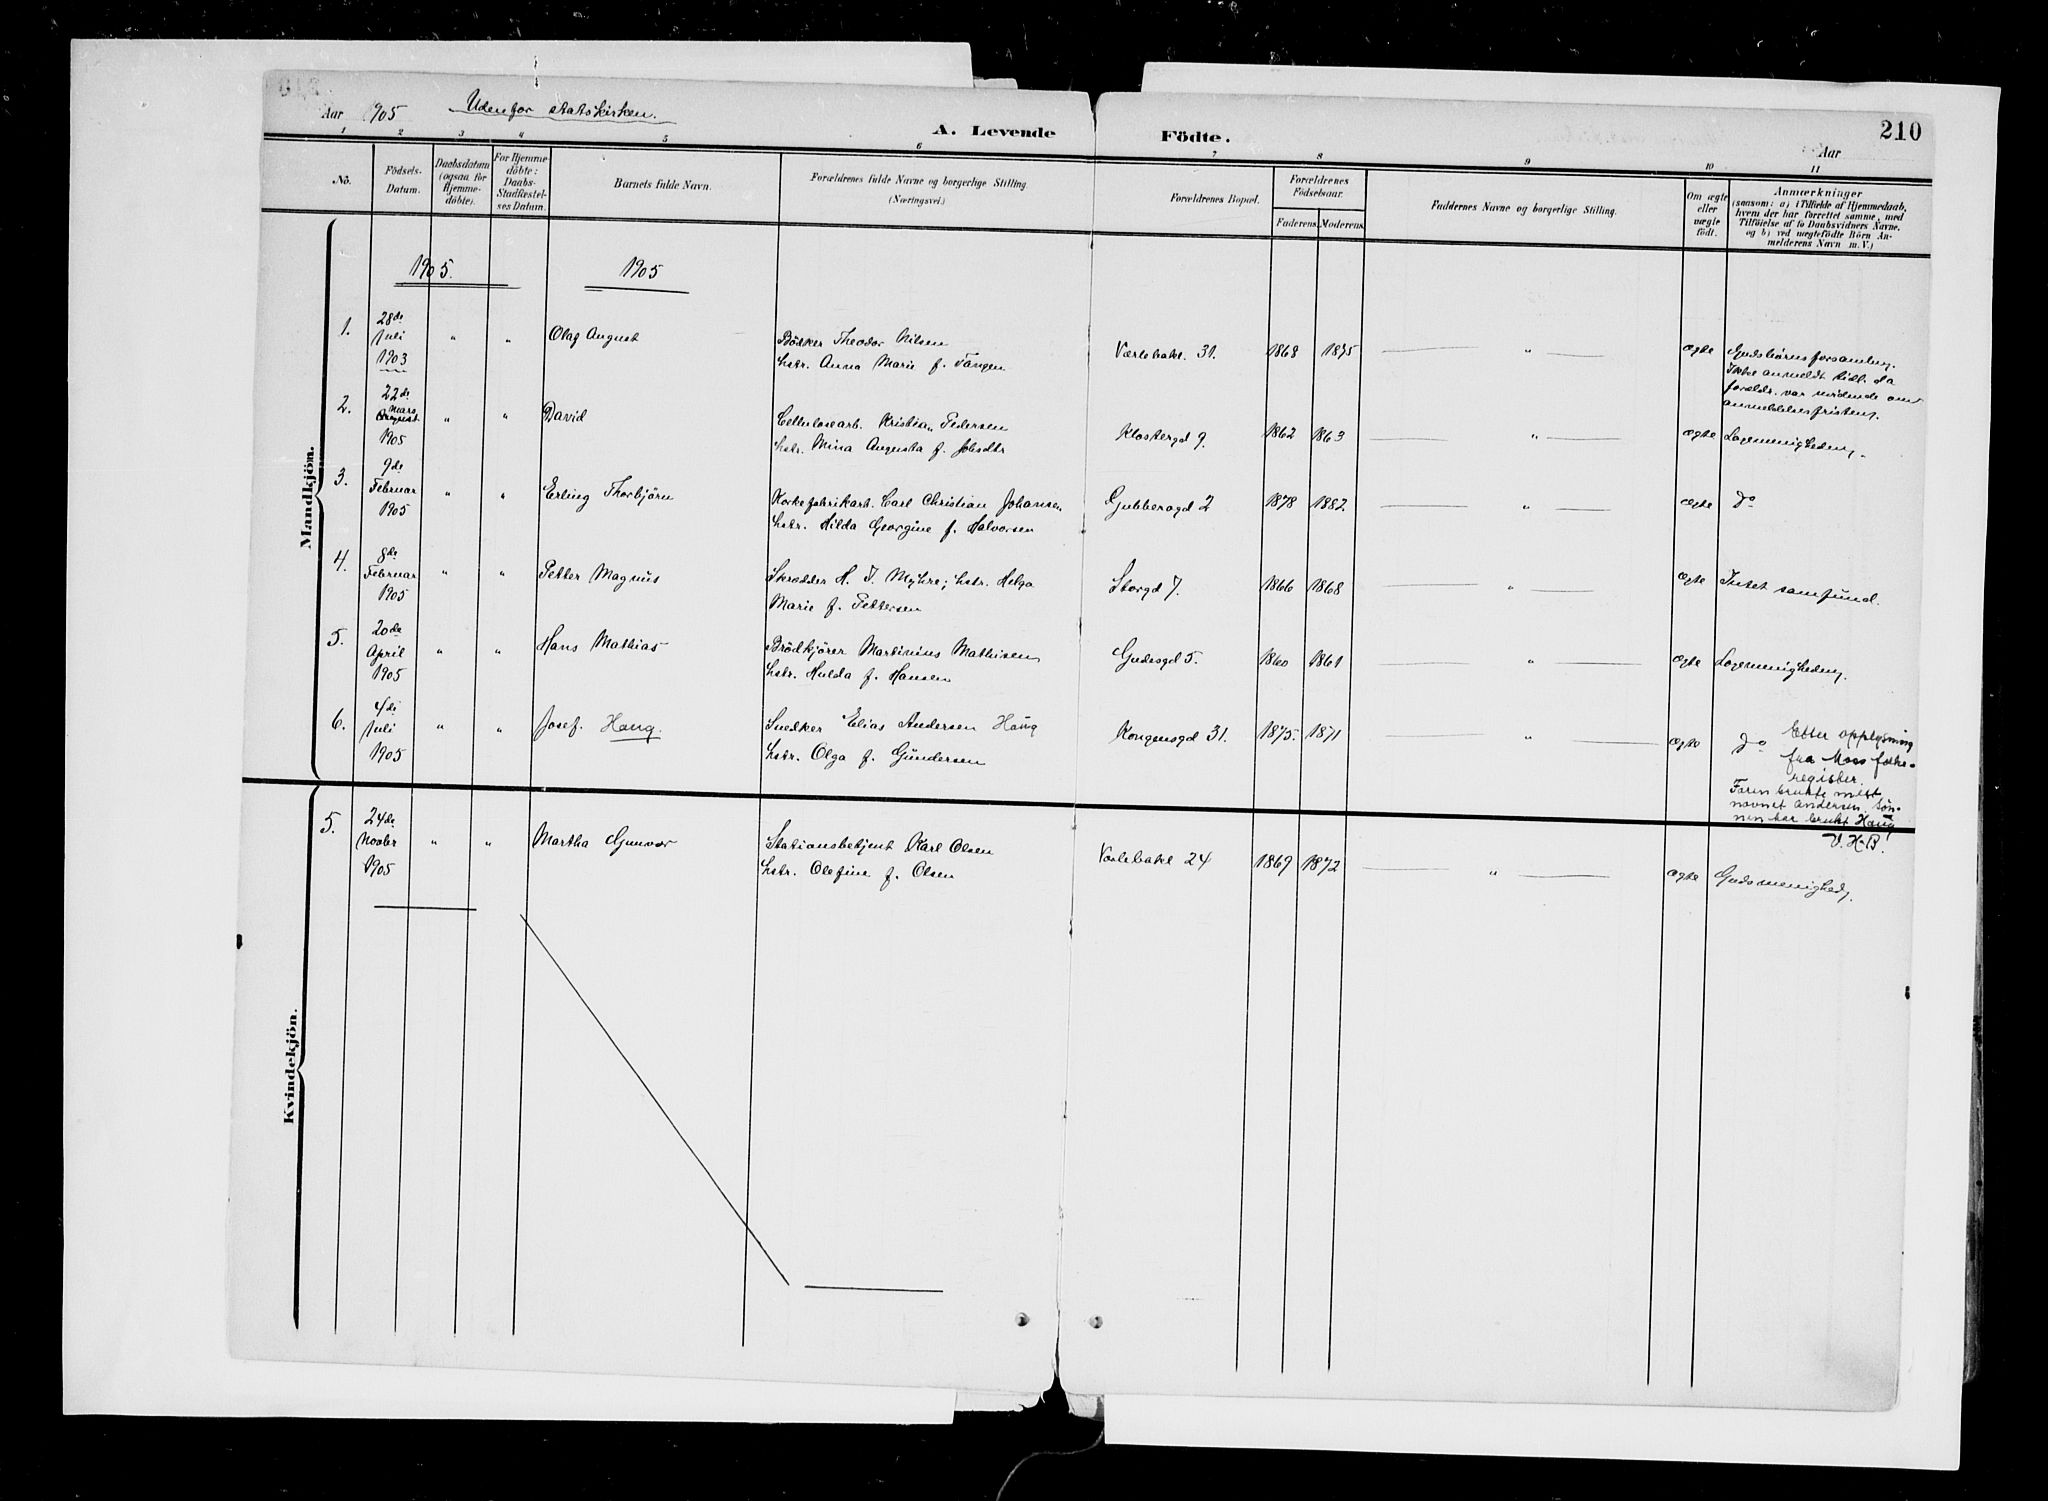 Aar 1905 Udenfor statskirken.
A. Levende Födte.
210
Aar
1 2 3 4 5 6 7 8 9 10 11
No.
Födsels-
Datum.
Daabsdatum
(ogsaa for
Hjemme-
döbte).
For Hjemme-
döbte:
Daabs-
Stadfæstel-
ses Datum.
Barnets fulde Navn.
Forældrenes fulde Navne og borgerlige Stilling
(Næringsvei.)
Forældrenes Bopæl.
Forældrenes
Födselsaar.
Faderens. Moderens.
Faddernes Navne og borgerlige Stilling.
Om ægte
eller
uægte
födt.
Anmærkninger
(saasom: a) i Tilfælde af Hjemmedaab,
hvem der har forrettet samme, med
Tilföielse af to Daabsvidners Navne,
og b) ved uægtefödte Börn An-
melderens Navn m. V.)
Mandkjön.
1905. 1905
1. 28de
Juli
1903
" " Olaf August
Bödker Theodor Nilsen
hstr. Anna Marie f. Tangen
Værlebakk. 31. 1868 1875 " ægte
Gudsbörns forsamling.
Ikke anmeldt tidl. da
foreldr. var uvidende om
anmeldelsesfristen.
2. 22de
Mars
August
1905
" " David
Cellulosearb. Kristian Pedersen
hstr. Mina Augusta f. Jobsdtr
Klostergd 9. 1862 1863 " ægte Logemenigheden.
3. 9de
Februar
1905
" " Erling Thorbjörn
Korkefabrikarb. Carl Christian Johansen
hstr. Hilda Georgine f. Halvorsen
Gubberogd 2 1878 1882. " ægte Do
4. 8de
Februar
1905
" " Petter Magnus
Skrædder H. J. Myhre; hstr. Helga
Marie f. Pettersen
Storgd 7. 1866 1868 " ægte Intet samfund.
5. 20de
April
1905
" " Hans Mathias
Brödkjörer Martinius Mathisen
hstr. Hulda f. Hansen
Gudesgd 5. 1860 1861 " ægte Logemenigheden.
6. 4de
Juli
1905
" " Josef. Haug.
Snedker Elias Andersen Haug
hstr. Olga f. Gundersen
Kongensgd 31. 1875. 1871 " ægte do
Etter opplysning
fra Moss folke-
register.
Faren brukte mest
navnet Andersen. Søn-
nen har brukt Haug
V. H. B.
Kvindekjön.
5. 24de
Novbr
1905
" " Martha Gunvor
Stationsbetjent Karl Olsen
hstr. Olefine f. Olsen
Værlebakk 24 1869 1872 " ægte Gudsmenighed.